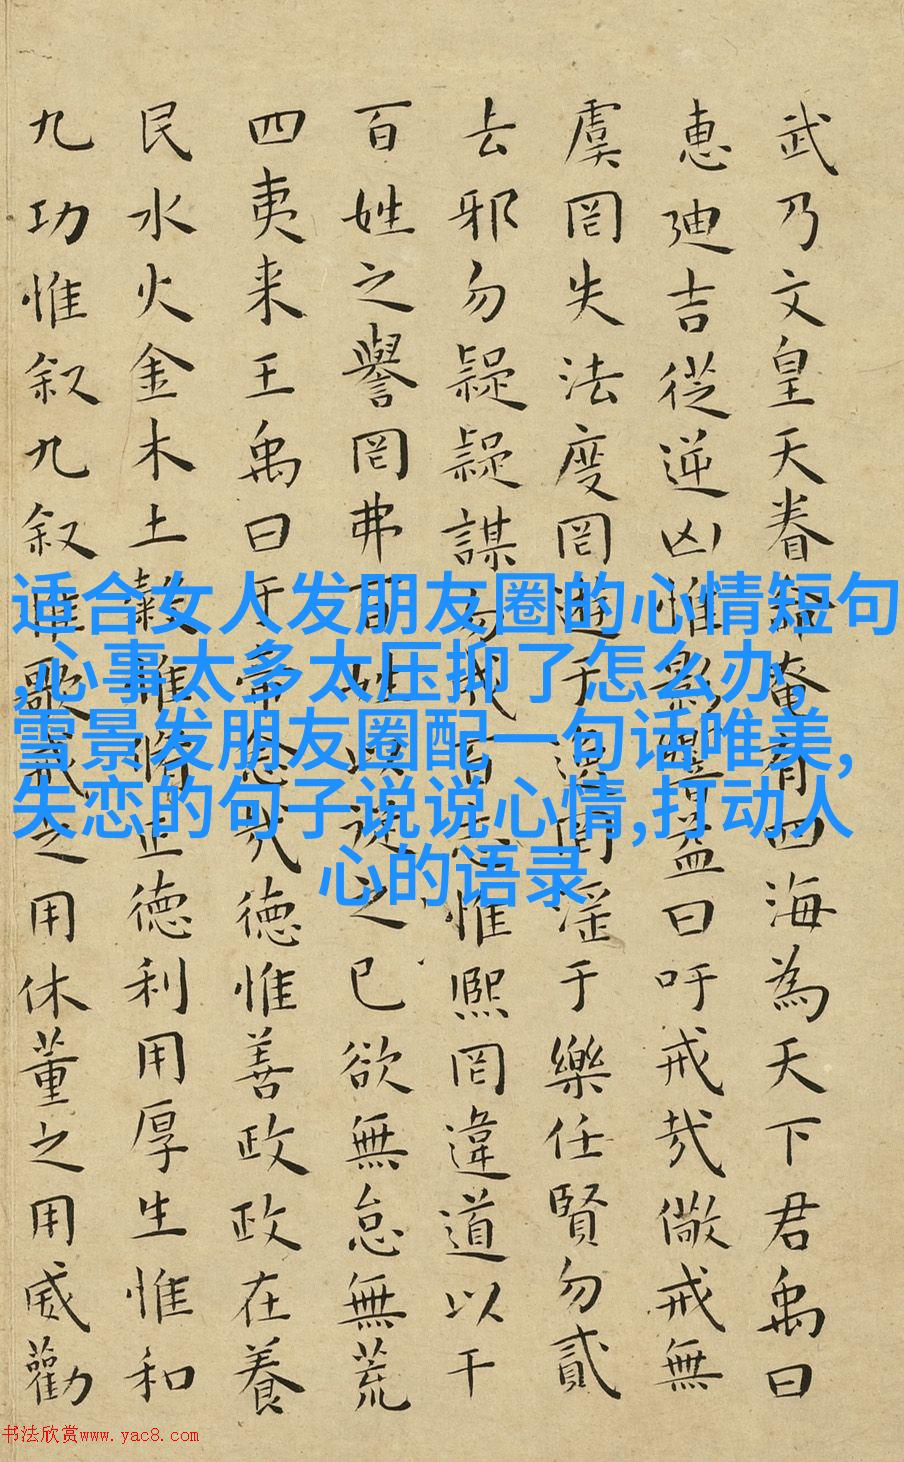 武乃文皇天眷命奄有四海為天下君禹曰
惠迪吉從逆凶惟影響益曰吁戒哉儆戒無
虞罔失法度罔遊于逸罔淫于樂任賢勿貳
去邪勿疑疑謀勿成百志惟熙罔違道以干
百姓之譽罔弗百姓以從之已欲無怠無荒
四夷来王禹曰于帝念哉德惟善政政在養
民水火金木土穀惟脩正德利用厚生惟和
九功惟叙九叙惟歌戒之用休董之用威勸
适合女人发朋友圈的心情短句
,心事太多太压抑了怎么办,
雪景发朋友圈配一句话唯美,
失恋的句子说说心情,打动人
心的语录
书法欣赏www.yac8.com